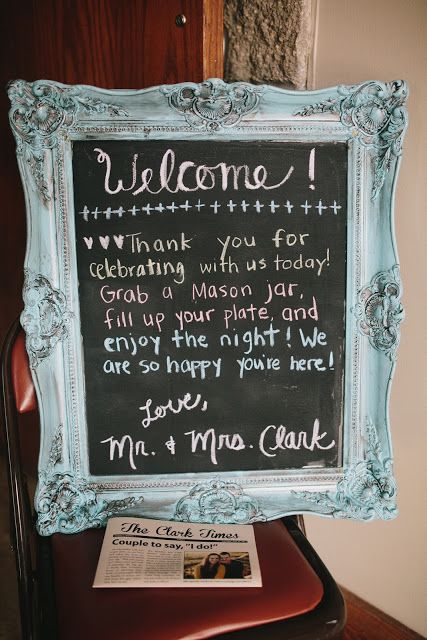 Welcome!
Thank you for
celebrating with us today!
Grab a Mason jar,
fill up your plate, and
enjoy the night! We
are so happy you're here!
Love,
Mr. & Mrs. Clark
The Clark Times
Couple to say, "I do!"